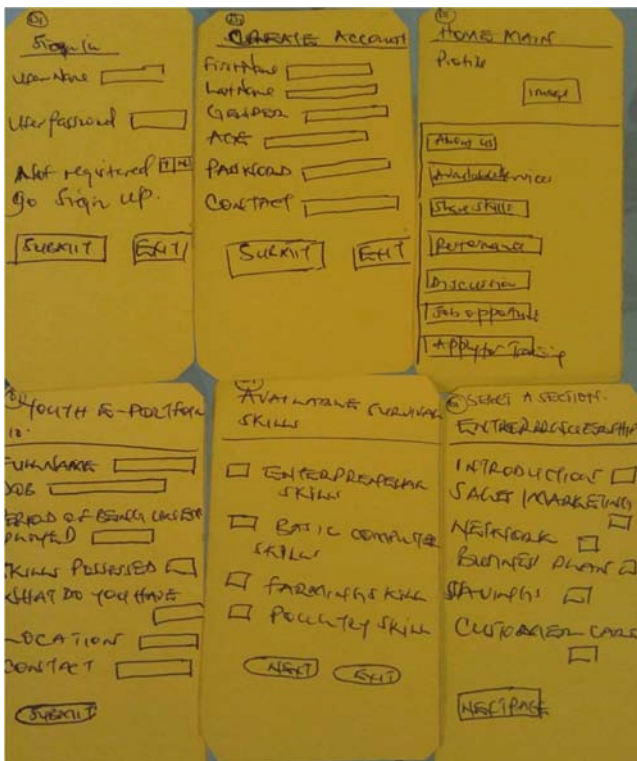 Sign in
UserName
UserPassword
Not registered Y N
go Sign up.
SUBMIT EXIT
CREATE ACCOUNT
FirstName
LastName
GENDER
AGE
PASSWORD
CONTACT
SUBMIT EXIT
HOME MAIN
Profile
Image
About us
Available Services
Share Skills
Performance
Discussion
Job opportunity
Apply for Training
YOUTH E-PORTFOL
IO.
FULLNAME
DOB
PERIOD OF BEING UNEM
PLOYED
SKILLS POSSESSED
WHAT DO YOU HAVE
LOCATION
CONTACT
SUBMIT
AVAILABLE SURVIVAL
SKILLS
ENTERPRENEUR
SKILLS
BASIC COMPUTER
SKILLS
FARMING SKILL
POULTRY SKILL
NEXT EXIT
SELECT A SECTION.
INTRODUCTION
SALES/MARKETING
NETWORK
BUSINESS PLAN
SAVINGS
CUSTOMER CARE
NEXTPAGE